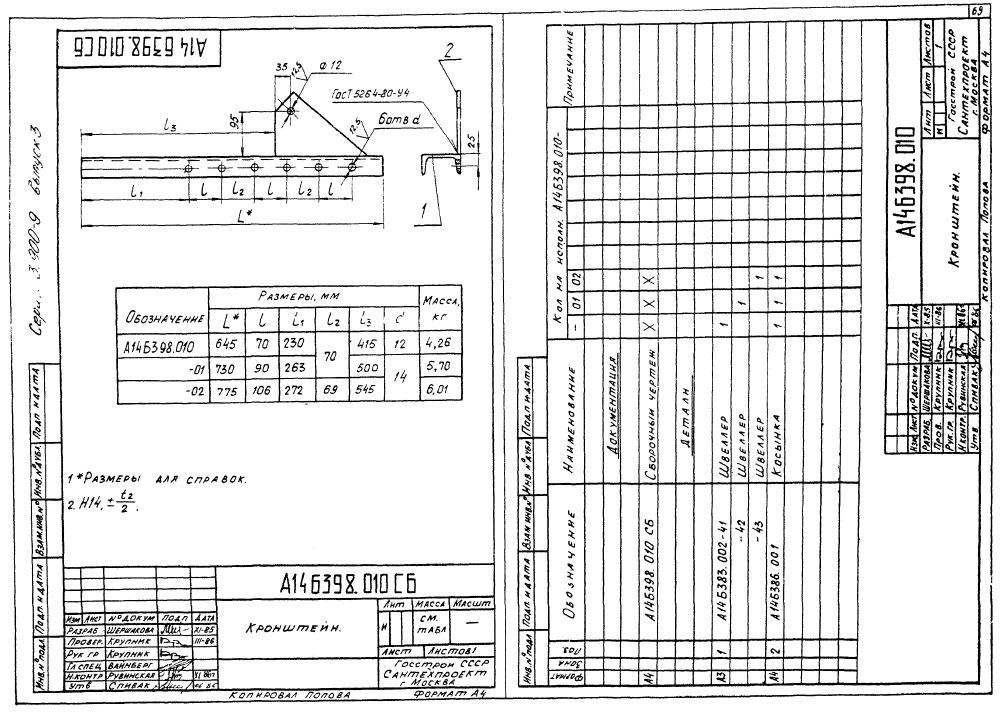 69
А14Б398.010 СБ
Серия 3.900-9 Выпуск 3
35
12,5
Ф 12
2
ГОСТ 5264-80-У4
12,5
6отв d
95
25
l3
l1 l l2 l l2 l
L*
1
Обозначение
Размеры, мм
Масса, кг
L* l l1 l2 l3 d
А14Б398.010 645 70 230 70 415 12 4,26
-01 730 90 263 500 14 5,70
-02 775 106 272 69 545 6,01
1 *Размеры для справок.
2. H14, ± t2/2.
Инв.№подл Подп. и дата Взам.инв.№ Инв.№дубл. Подп и дата
А14Б398.010 СБ
Кронштейн.
Лит Масса Масшт
И см. табл —
Лист Листов 1
Госстрой СССР
Сантехпроект
г Москва
Изм Лист № докум Подп Дата
Разраб Шершакова XI-85
Провер. Крупник III-86
Рук гр Крупник
Гл спец Вайнберг
Н.контр Рувинская
Утв Спивак
Копировал Попова Формат А4
Формат Зона Поз. Обозначение Наименование Кол на исполн. А14Б398.010- Примечание
- 01 02
Документация
А4 А14Б398.010 СБ Сборочный чертеж X X X
Детали
А3 1 А14Б383.002-41 Швеллер 1
-42 Швеллер 1
-43 Швеллер 1
А4 2 А14Б386.001 Косынка 1 1 1
Инв.№подл Подп. и дата Взам инв.№ Инв.№дубл Подп и дата
А14Б398.010
Кронштейн.
Лит Лист Листов
И 1
Госстрой СССР
Сантехпроект
г. Москва
Изм Лист № докум Подп. Дата
Разраб Шершакова X-85
Пров. Крупник III-86
Рук.гр. Крупник
Н.контр. Рувинская
Утв Спивак
Копировал Попова Формат А4